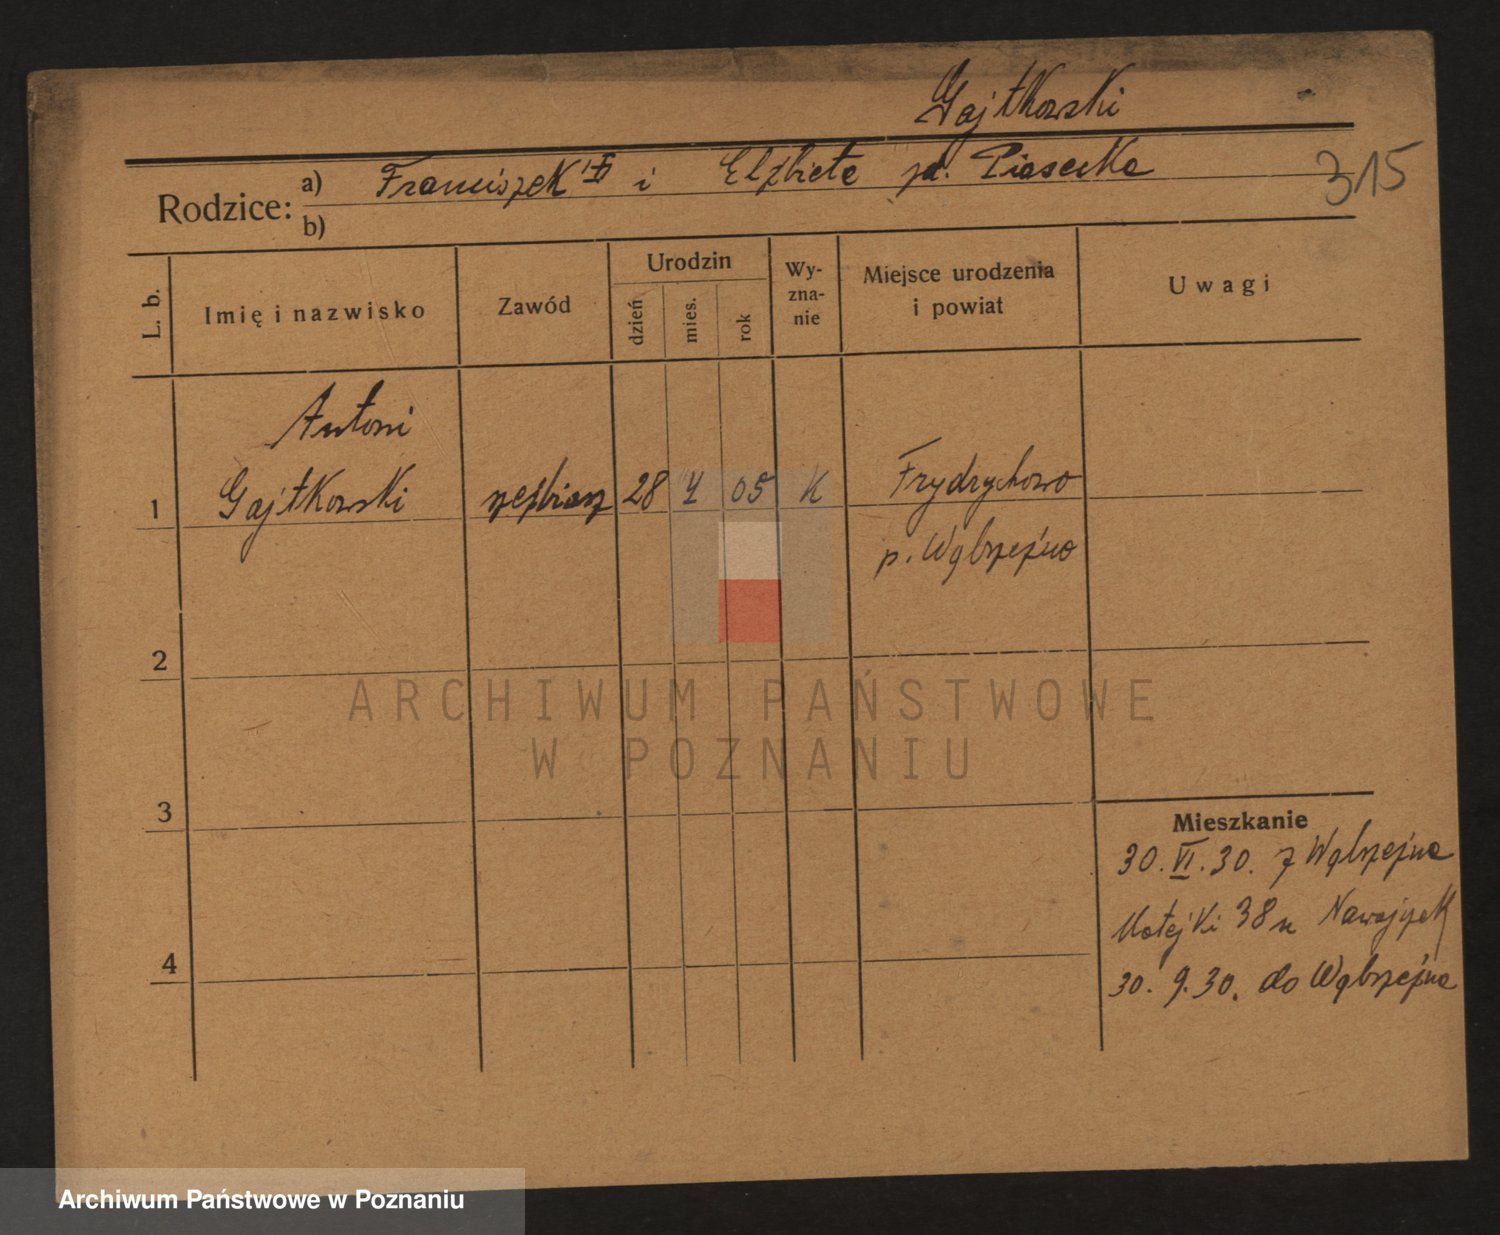 Gajtkowski
315
Rodzice: a) Franciszek i Elżbieta zd. Piasecka
b)
L. b. Imię i nazwisko Zawód Urodzin dzień mies. rok Wy-zna-nie Miejsce urodzenia i powiat Uwagi
Antoni
1 Gajtkowski rzeźbiarz 28 05 K Frydrychowo
p. Wąbrzeźno
2
ARCHIWUM PAŃSTWOWE
W POZNANIU
3
Mieszkanie
30. VI. 30. z Wąbrzeźna
Matejki 38 u Nawojczek
4
30. 9. 30. do Wąbrzeźna
Archiwum Państwowe w Poznaniu